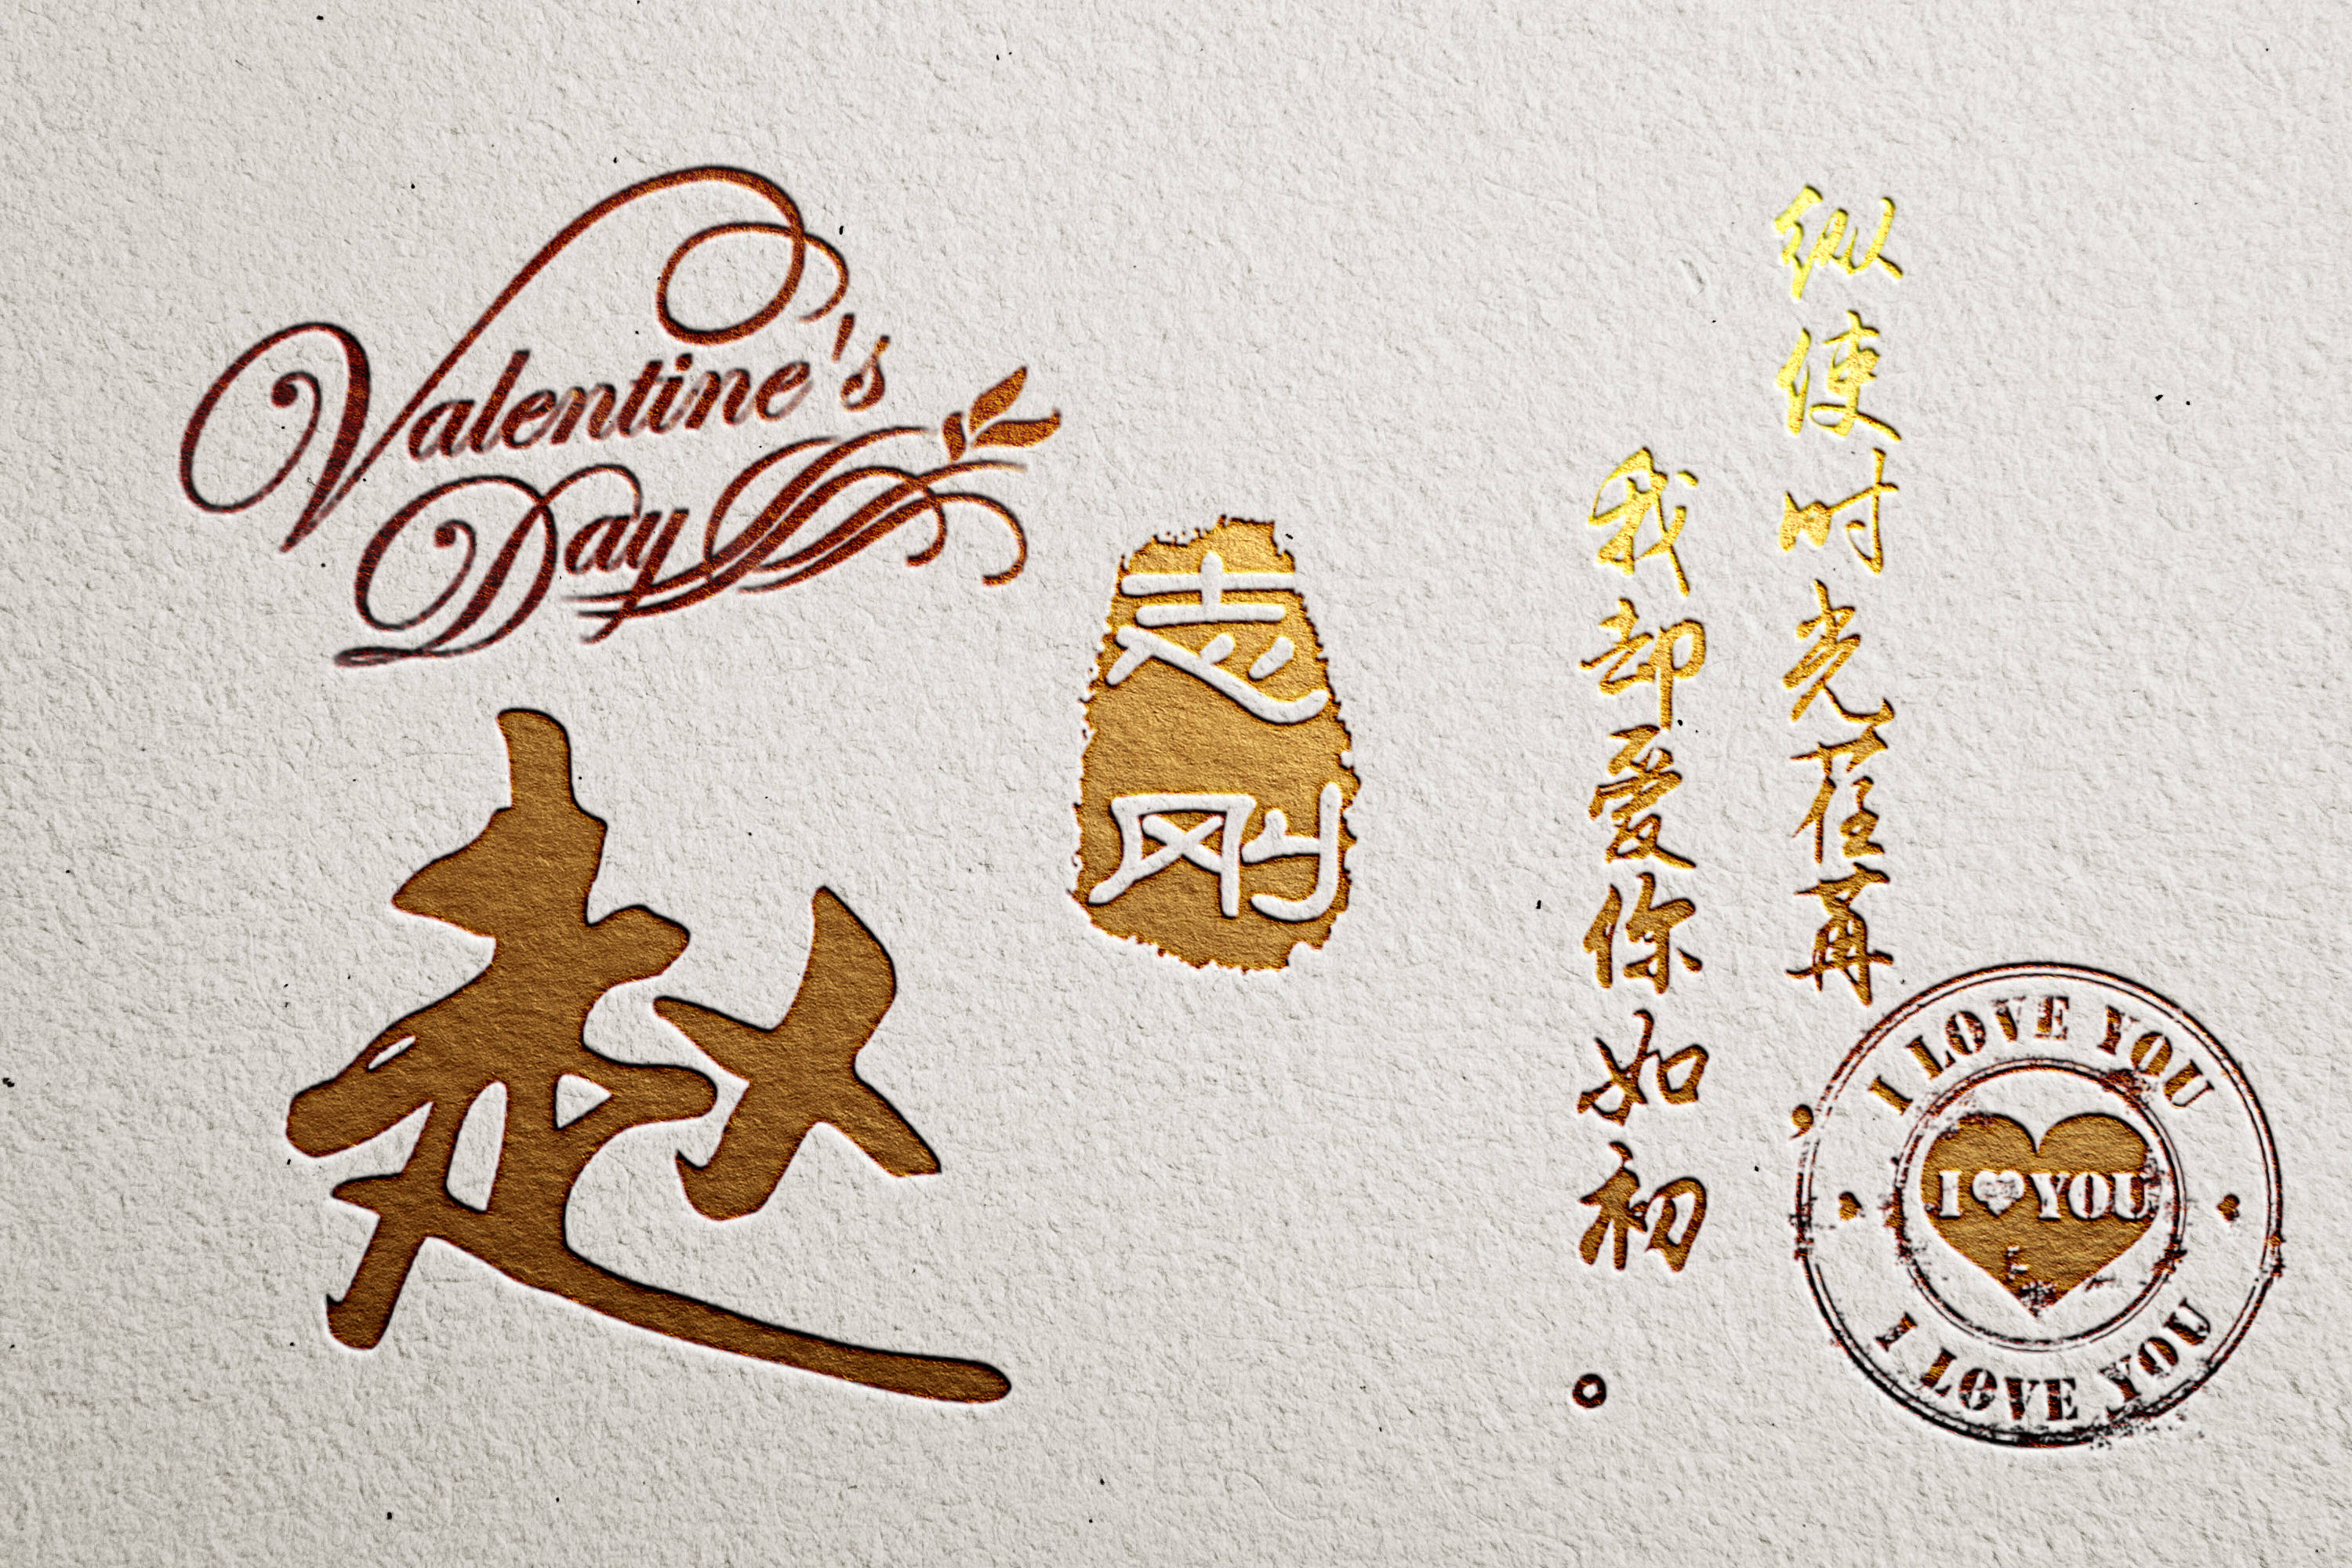 Valentine's
Day
赵
志
刚
纵使时光荏苒，
我却爱你如初。
I LOVE YOU
I♥YOU
I LOVE YOU